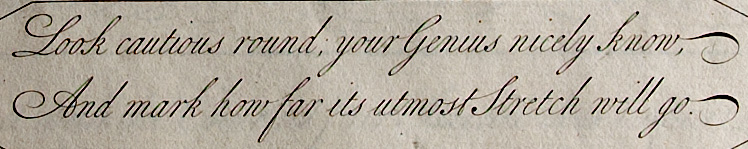 Look cautious round; your Genius nicely know,
And mark how far its utmost Stretch will go.